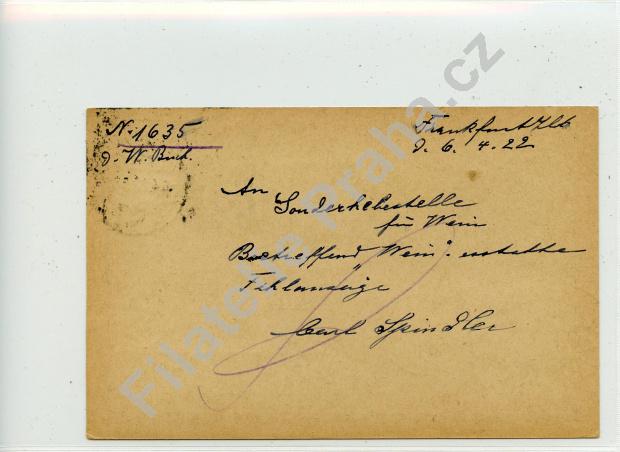 N. 1635
d. W. Buch.
Frankfurt
d. 6. 4. 22
An Sonderhebestelle
für Wein
Betreffend "Wein": erstatte
Fehlanzeige
Carl Spindler
Filatelie Praha.cz